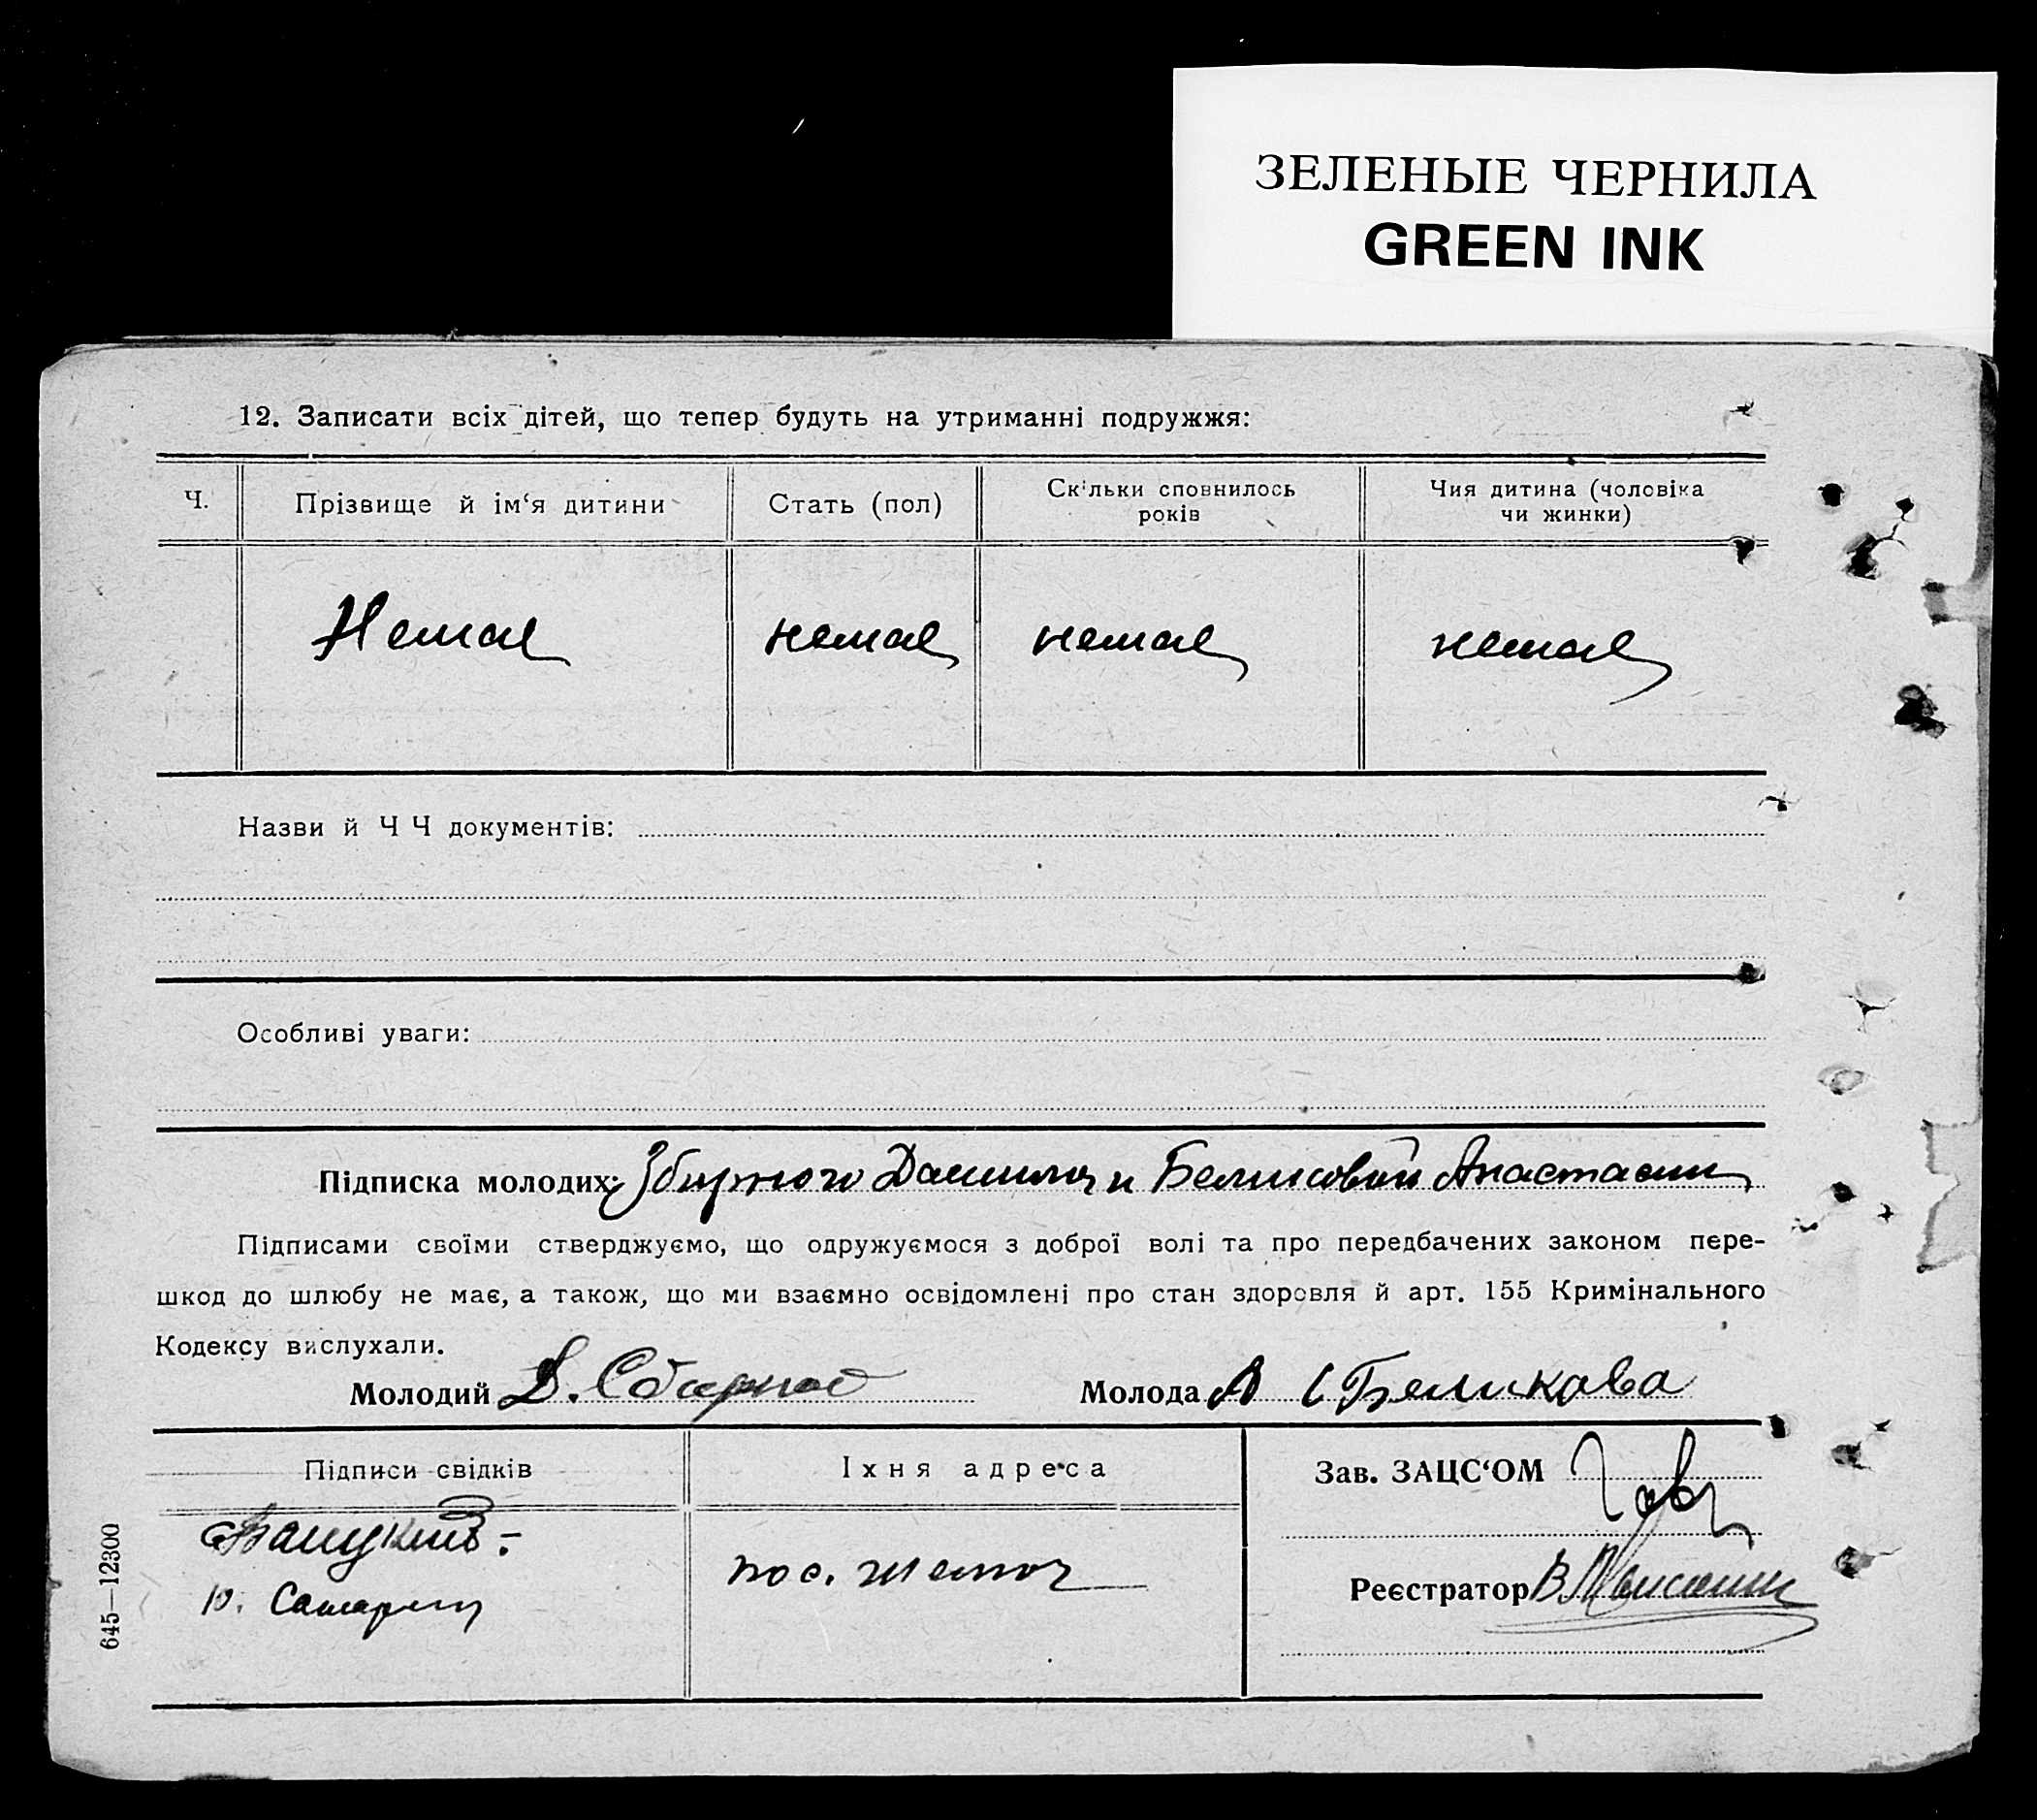 ЗЕЛЕНЫЕ ЧЕРНИЛА
GREEN INK
12. Записати всіх дітей, що тепер будуть на утриманні подружжя:
Ч.
Прізвище й ім‘я дитини
Стать (пол)
Скільки сповнилось
років
Чия дитина (чоловіка
чи жинки)
Немає
немає
немає
немає
Назви й ЧЧ документів:
Особливі уваги:
Підписка молодих: Збирного Даниила и Беликовой Анастасии
Підписами своїми стверджуємо, що одружуємося з доброї волі та про передбачених законом пере-
шкод до шлюбу не має, а також, що ми взаємно освідомлені про стан здоровля й арт. 155 Кримінального
Кодексу вислухали.
Молодий Д. Сбирной
Молода А Беликова
Підписи свідків
Їхня адреса
Зав. ЗАЦС‘ОМ
пос.
Реєстратор В
645—12300